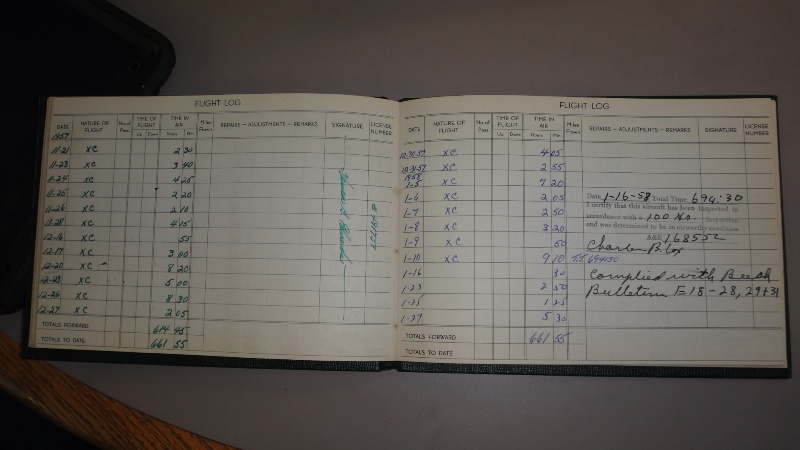 FLIGHT LOG
DATE NATURE OF FLIGHT No. of Pass. TIME OF FLIGHT Up Down TIME IN AIR Hours Min. Miles Flown REPAIRS—ADJUSTMENTS—REMARKS SIGNATURE LICENSE NUMBER
1957
11-21 XC 2 30
11-23 XC 3 40
11-24 XC 4 25
11-25 XC 2 20
11-26 XC 2 10
11-28 XC 4 15
12-16 XC 55
12-17 XC 3 00
12-20 XC 8 20
12-23 XC 5 00
12-26 XC 8 30
12-27 XC 2 05
TOTALS FORWARD 614 45
TOTALS TO DATE 661 55
FLIGHT LOG
DATE NATURE OF FLIGHT No. of Pass. TIME OF FLIGHT Up Down TIME IN AIR Hours Min. Miles Flown REPAIRS—ADJUSTMENTS—REMARKS SIGNATURE LICENSE NUMBER
12-30-57 XC 4 05
12-31-57 XC 2 55
1958
1-5 XC 7 20
1-6 XC 2 05
1-7 XC 2 50
1-8 XC 3 20
1-9 XC 50
1-10 XC 9 10 T.T. 694:30
1-16 30
1-23 2 50
1-25 1 25
1-27 5 30
TOTALS FORWARD 661 55
TOTALS TO DATE
Date 1-16-58 Total Time 694:30
I certify that this aircraft has been inspected in
accordance with a 100 Hr. inspection
and was determined to be in airworthy condition
A&E 168552
Charles B. Cox
Complied with Beech
Bulletin E18-28, 29+31